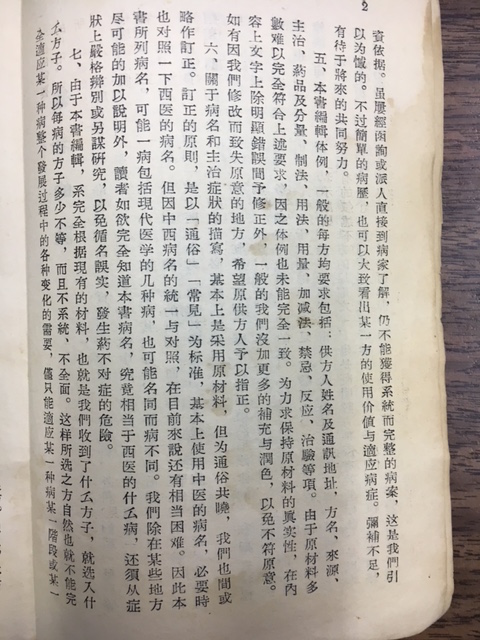 2
查依据。虽屡經函詢或派人直接到病家了解，仍不能獲得系統而完整的病案，這是我們引
以为憾的。不过簡單的病歷，也可以大致看出某一方的使用价值与適应病症。彌補不足，
有待于將來的共同努力。
五、本書編輯体例，一般的每方均要求包括：供方人姓名及通訊地址、方名、來源、
主治、葯品及分量、制法、用法、用量、加減法、禁忌、反应、治驗等項。由于原材料多
數难以完全符合上述要求，因之体例也未能完全一致。为力求保持原材料的眞实性，在內
容上文字上除明顯錯誤間予修正外，一般的我們沒加更多的補充与潤色，以免不符原意。
如有因我們修改而致失原意的地方，希望原供方人予以指正。
六、關于病名和主治症狀的描寫，基本上是采用原材料，但为通俗共曉，我們也間或
略作訂正。訂正的原則，是以「通俗」「常見」为标准，基本上使用中医的病名，必要時
也对照一下西医的病名。但因中西病名的統一与对照，在目前來說还有相当困难。因此本
書所列病名，可能一病包括現代医学的几种病，也可能名同而病不同。我們除在某些地方
尽可能的加以説明外，讀者如欲完全知道本書病名，究竟相当于西医的什么病，还須从症
狀上嚴格辨別或另謀研究，以免循名誤实，發生葯不对症的危險。
七、由于本書編輯，系完全根据現有的材料，也就是我們收到了什么方子，就选入什
么方子。所以每病的方子多少不等，而且不系統，不全面。这样所选之方自然也就不能完
全適应某一种病整个發展过程中的各种变化的需要，僅只能適应某一种病某一階段或某一